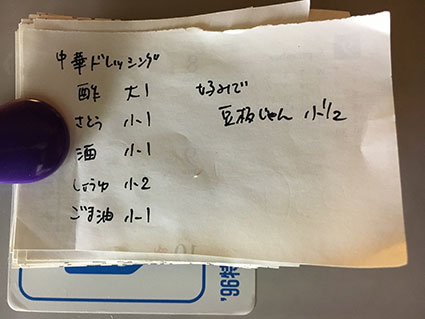 中華ドレッシング
酢 大1
さとう 小1
酒 小1
しょうゆ 小2
ごま油 小1
好みで
豆板じゃん 小1/2
'96